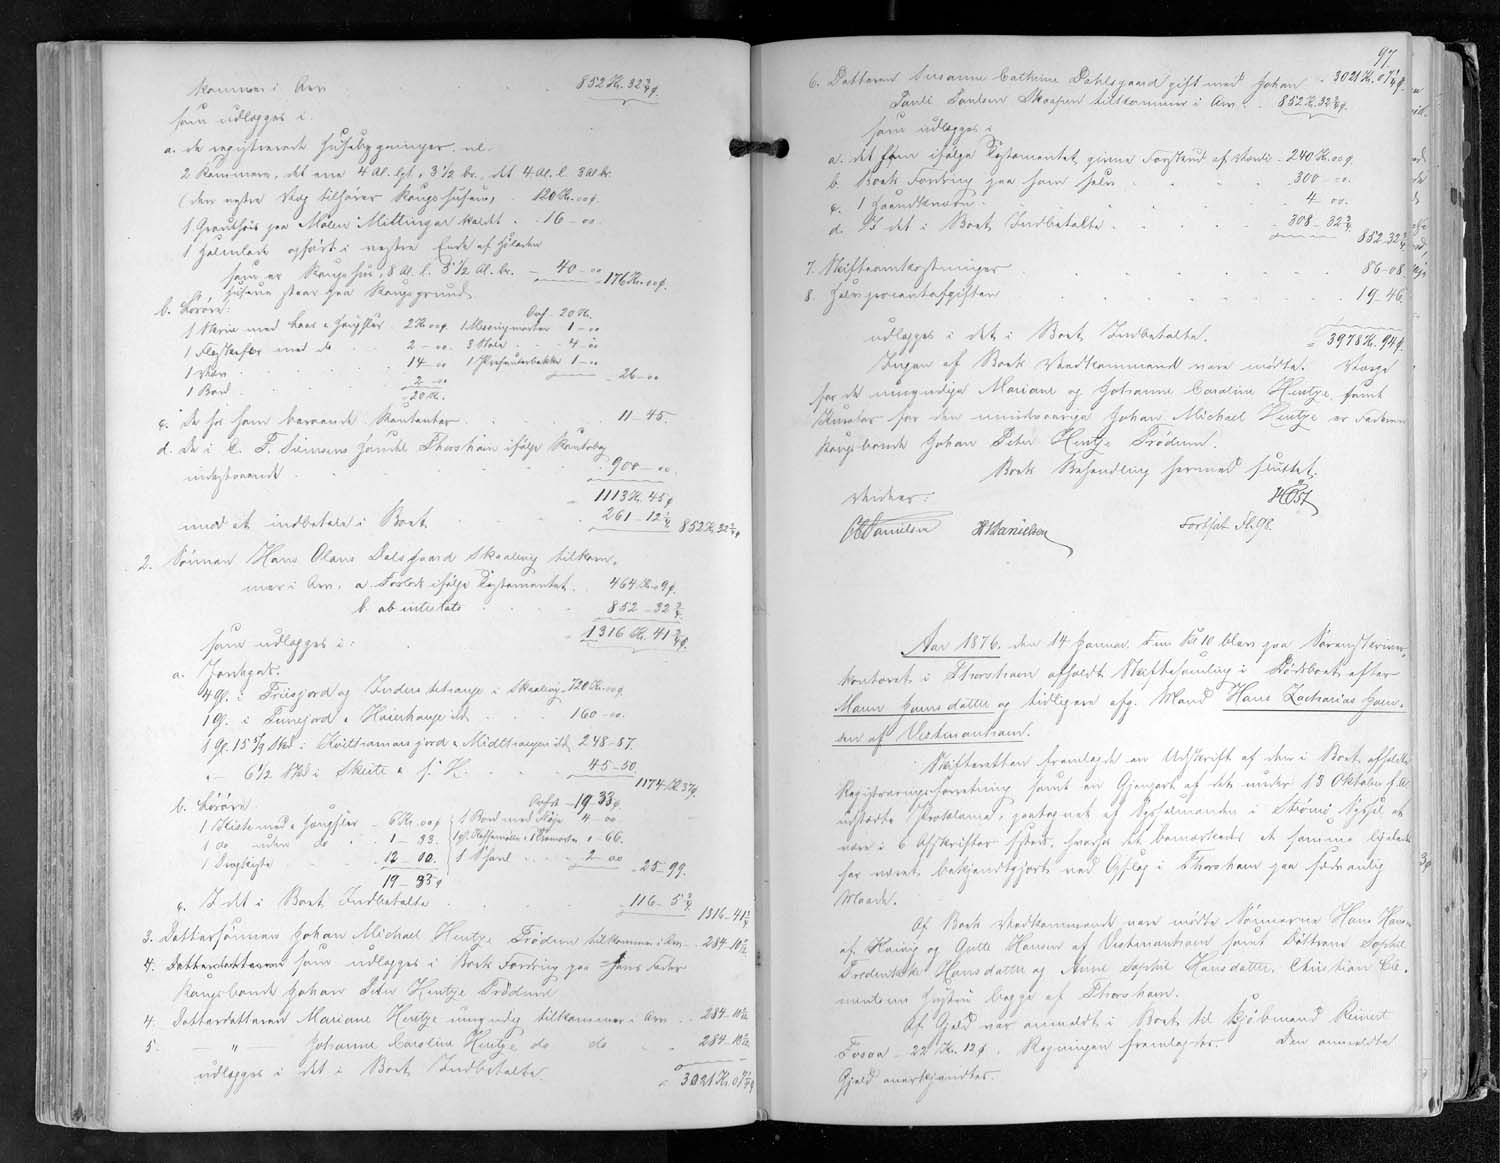 kommer i Arv . . . 852 Kr. 32 3/4 ø.
som udlægges i:
a. de registrerede Husebygninger, nl.
2 Kammere, det ene 4 Al. lgt, 3 1/2 br., det 4 Al. l. 3 Al. br.
(den vestre Væg tilhører Kongshusene) . 120 Kr. 00 ø.
1 Grouthus paa Mølen Mittingar kaldet . . 16 - 00.
1 Halmlade opført i vestre Ende af Høladen
som er Kongshus, 8 Al. l. 5 1/2 Al. br. - 40 - 00 176 Kr. 00 ø.
Husene staar paa Kongsgrund.
b. Løsøre: Ovf. 20 Kr.
1 Skrin med Laas & Hængsler 2 Kr. 00 ø. 1 Messingmorter 1 - 00
1 med do . . 2 - 00. 3 Stole . . 4 - 00
1 Væv . . 14 - 00 1 Præsenterbakke 1 - 00
1 Bord . . 2 - 00 26 - 00
20 Kr.
c. De for ham barende Kontanter . . 11 - 45.
d. De i C. F. Siemsens Handel Thorshavn ifølge Kontrabog
indestaaende . . . 900 - 00.
1113 Kr. 45 ø
mod at indbetale i Boet . . 261 - 12 1/4 852 Kr. 32 3/4 ø
2. Sønnen Hans Olaus Dalsgaard Skaalevig tilkom-
mer i Arv, a. Forlod ifølge Testamentet . . 464 Kr. 9 ø.
b. ab intestato . . 852 - 32 3/4
som udlægges i: 1316 Kr. 41 3/4 ø.
a. Jordegods.
4 Gl. i Friisjord og Inders tetrange i Skaalevig 720 Kr. 00 ø.
1 Gl. i Tunejord & Heierhauge ibd . . 160 - 00.
1 Gl. 15 5/9 Skd i Kvithamarsjord & Midlhauges ibd. 248 - 87.
" - 6 1/2 Skd i Skeite & f. H. . . 45 - 50.
1174 Kr. 37 ø.
b. Løsøre. Ovfrt. 19 - 33 ø.
1 Kiste med & Hængsler - 6 Kr. 00 ø 1 Bord med Fløje 4 - 00
1 do uden do . . 1 - 33. 1 gl. Kaffemølle & 1 Barometer " - 66.
1 Dragkiste . . 12 - 00. 1 Skarl . . 2 00 25 - 99.
19 - 33 ø
c. I det i Boet Indbetalte . . 116 - 5 3/4 1316 - 41 3/4
3. Dattersønnen Johan Michael Hentze Frodum tilkommer i Arv . 284 - 10 11/12
4. Datterdatteren som udlægges i Boets Fordring paa Hans Fader
Kongsbonde Johan Peter Hentze Frodum
4. Datterdatteren Mariane Hentze umyndig tilkommer i Arv . . 284 - 10 11/12
5. — " — Johanne Caroline Hentze do do . . 284 - 10 11/12
udlægges i det i Boet Indbetalte. 3021 Kr. 07 1/4 ø
97.
6. Datteren Susanne Cathrine Dahlsgaard gift med Johan . 3021 Kr. 07 1/4 ø.
Pauli Poulsen Skopen tilkommer i Arv . . 852 Kr. 32 3/4 ø.
som udlægges i
a. det ham ifølge Testamentet givne Forskud af Værdi - 240 Kr. 00 ø.
b. Boets Fordring paa ham selv . . 300 - 00.
c. 1 Haandkværn . . 4 - 00.
d. Af det i Boet Indbetalte . . 308 - 32 3/4
852 - 32 3/4
7. Skifteomkostninger . . . 86 - 08.
8. Halvprocentafgiften . . . 19 - 46.
udlægges i det i Boet Indbetalte. 3978 Kr. 94 ø.
Ingen af Boets Vedkommende vare mødte. Værge
for de umyndige Mariane og Johanne Caroline Hentze samt
Kurator for den mindreaarige Johan Michael Hentze er Faderen
Kongsbonde Johan Peter Hentze Frodum.
Boets Behandling hermed sluttet.
HOst
Vidner:
Danielsen H Danielsen Fortsat Fl. 98.
Aar 1876, den 14 Januar. Fm. Kl 10 blev paa Sorenskriver-
kontoret i Thorshavn afholdt Skiftesamling i Dødsboet efter
Maren Joensdatter og tidligere afg. Mand Hans Zacharias Joen-
sen af Vestmanhavn.
Skifteretten fremlagde en Udskrift af den i Boet afholdte
Registreringsforretning samt en Gjenpart af det under 13 Oktober f. A
udstedte Proklama, paategnet af Sysselmanden i Strømø Syssel at
være i 6 Afskrifter, hvorhos det bemærkedes at samme ligeledes
har været bekjendtgjort ved Opslag i Thorshavn paa sædvanlig
Maade.
Af Boets Vedkommende vare mødte Sønnerne Hans Hans-
af Hoivig og Gutte Hansen af Vestmanhavn samt Døttrene Sophie
Frederikke Hansdatter og Anne Sophie Hansdatter, Christian Cle-
mentsens Hustru begge af Thorshavn.
Af Gjæld var anmeldt i Boet til Kjøbmand Reinert
Fossaa - 22 Kr. 12 ø. Regningen fremlagdes. Den anmeldte
Gjæld anerkjendtes.